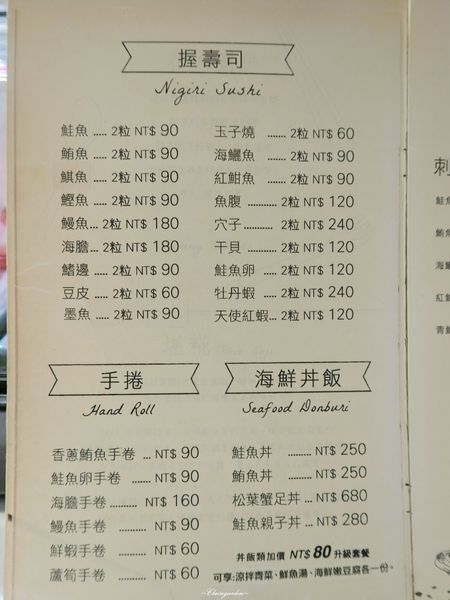 握壽司
Nigiri Sushi
鮭魚 ..... 2粒 NT$ 90
鮪魚 ..... 2粒 NT$ 90
旗魚 ..... 2粒 NT$ 90
鰹魚 ..... 2粒 NT$ 90
鰻魚... 2粒 NT$ 180
海膽... 2粒 NT$ 180
鰭邊 ..... 2粒 NT$ 90
豆皮 ..... 2粒 NT$ 60
墨魚 ..... 2粒 NT$ 90
玉子燒 ....... 2粒 NT$ 60
海鱺魚 ....... 2粒 NT$ 90
紅魽魚 ....... 2粒 NT$ 90
魚腹 ........... 2粒 NT$ 120
穴子........... 2粒 NT$ 240
干貝 ........... 2粒 NT$ 120
鮭魚卵 ....... 2粒 NT$ 120
牡丹蝦 ....... 2粒 NT$ 240
天使紅蝦... 2粒 NT$ 120
手捲
Hand Roll
香蔥鮪魚手卷 ... NT$ 90
鮭魚卵手卷 ....... NT$ 90
海膽手卷 .......... NT$ 160
鰻魚手卷 ........... NT$ 90
鮮蝦手卷 ........... NT$ 60
蘆筍手卷 ........... NT$ 60
海鮮丼飯
Seafood Donburi
鮭魚丼 ......... NT$ 250
鮪魚丼 ......... NT$ 250
松葉蟹足丼 ... NT$ 680
鮭魚親子丼 ... NT$ 280
丼飯類加價 NT$ 80 升級套餐
可享:涼拌青菜、鮮魚湯、海鮮嫩豆腐各一份。
刺
鮭
鮪
海
紅
青